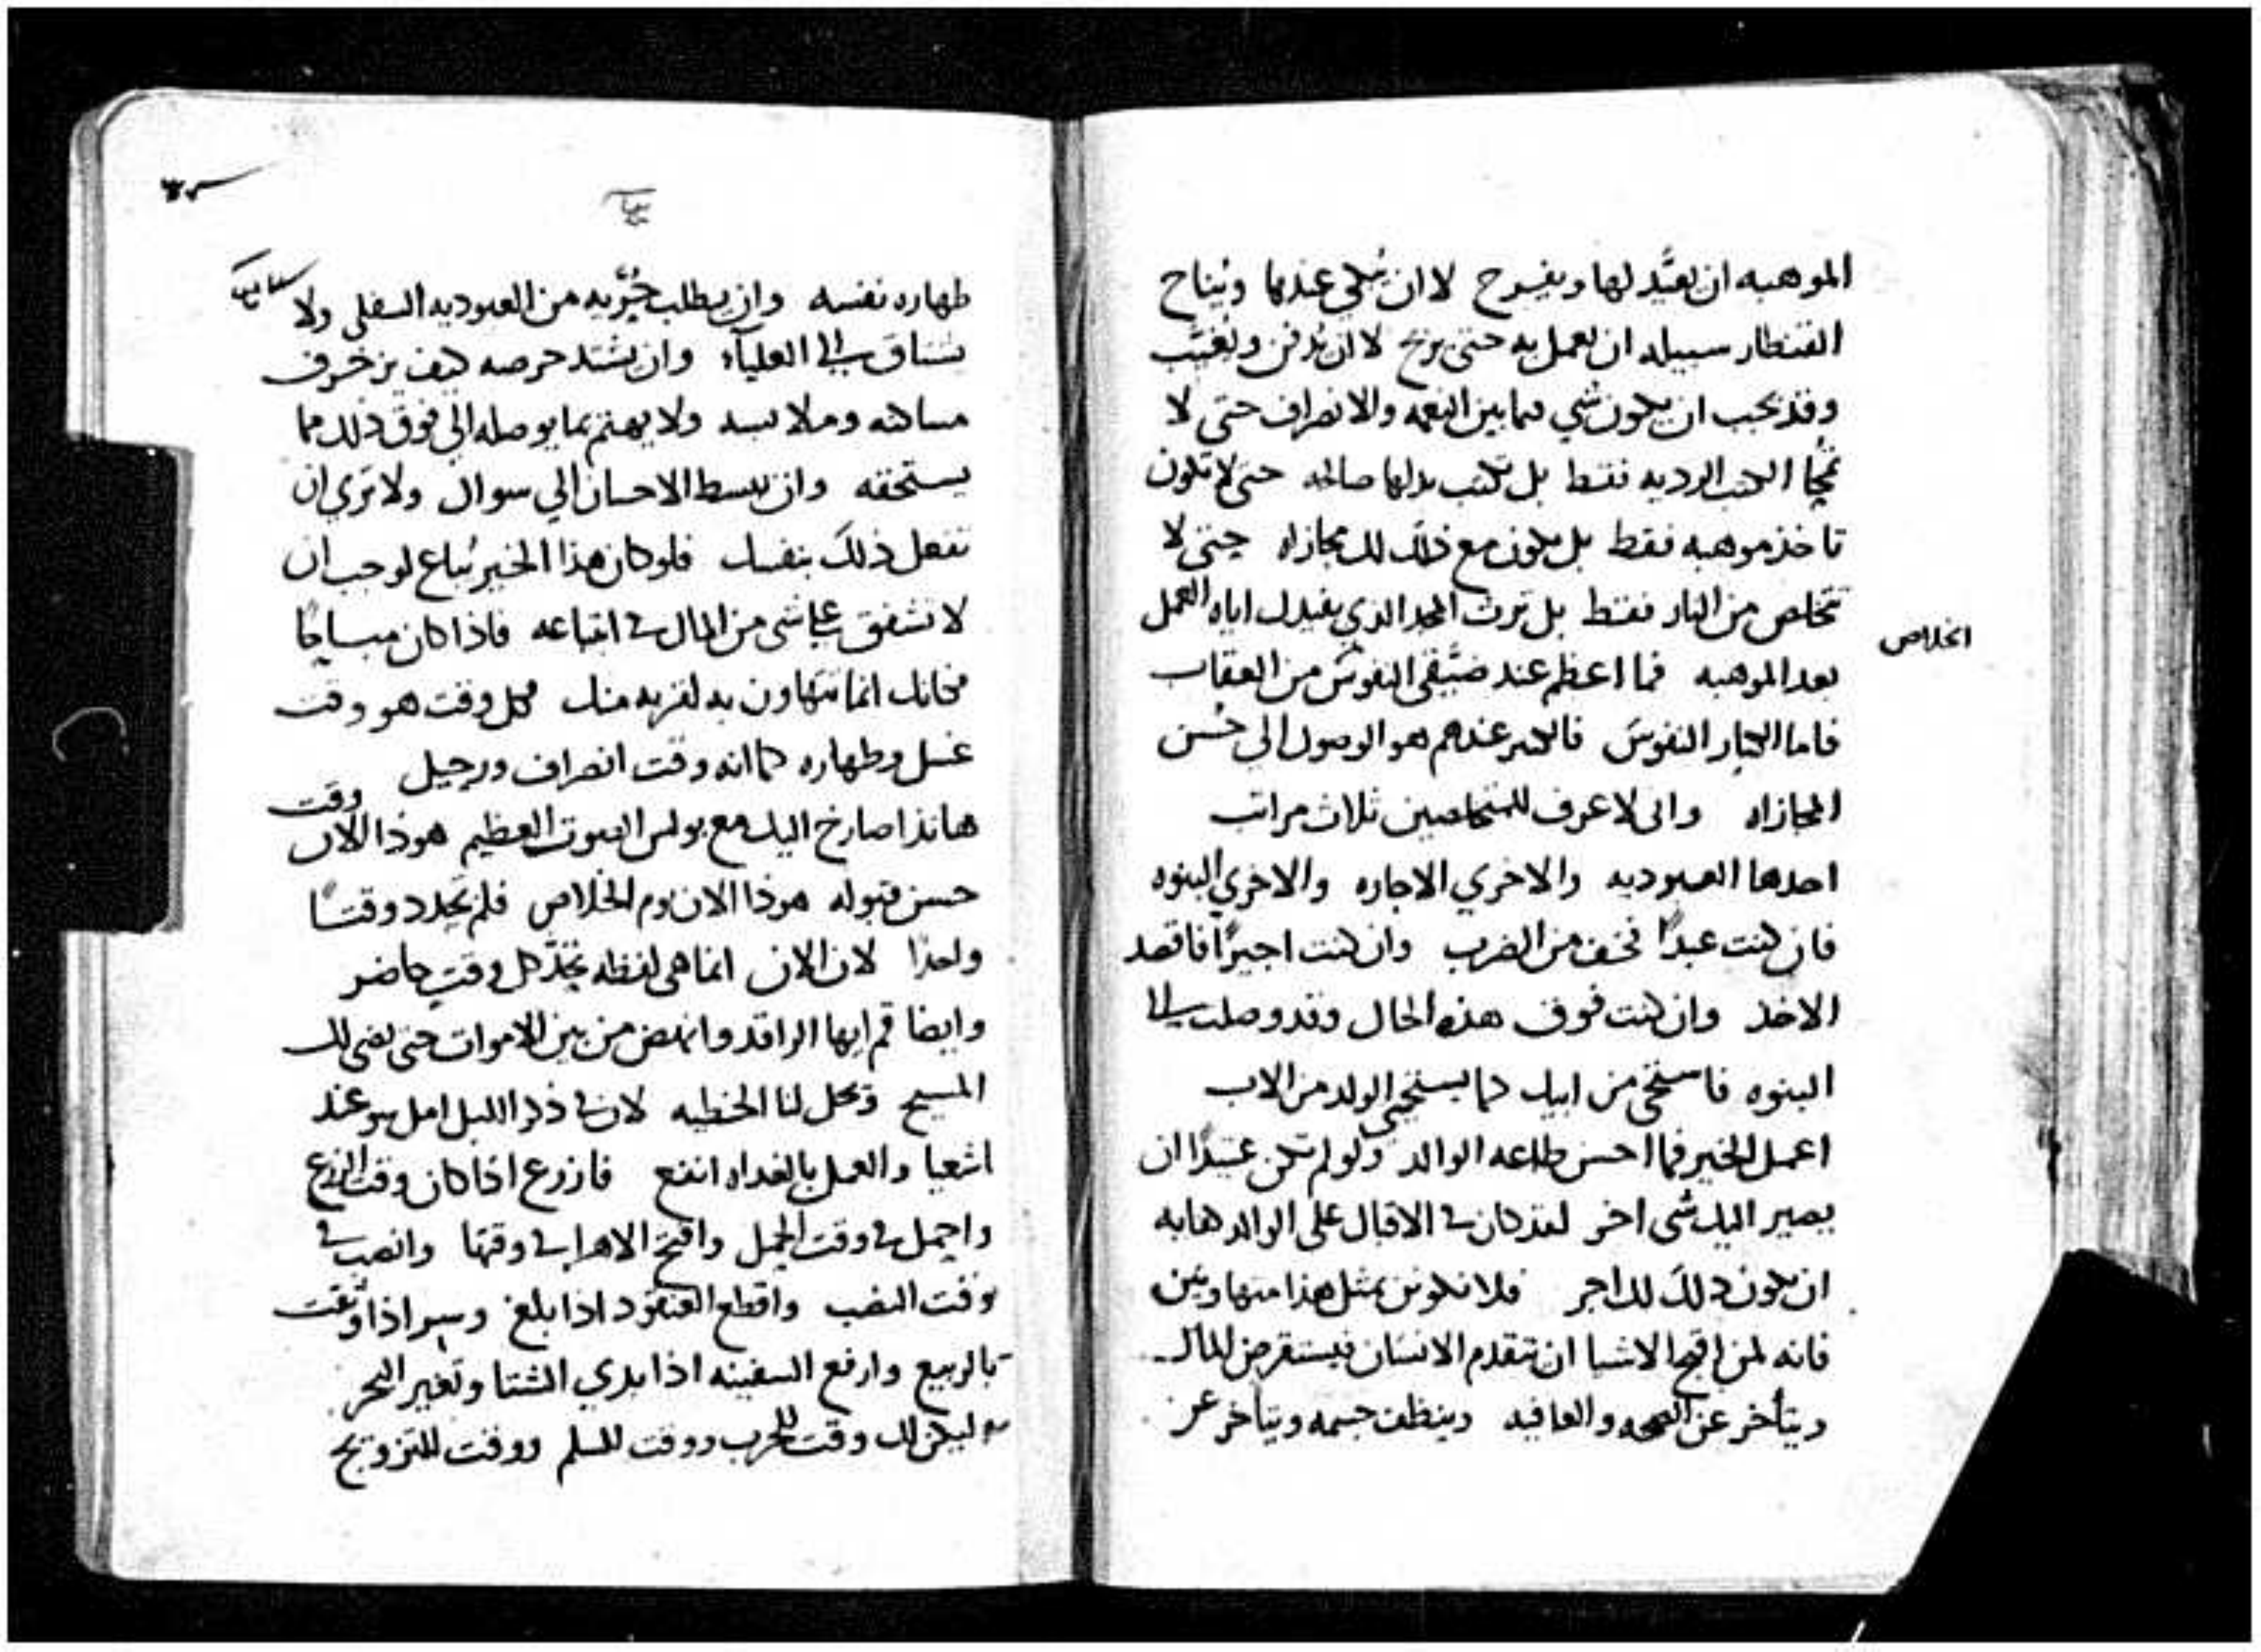 الموهبه ان يعيَّد لها ويفرح لا ان يُبكي عندها ويُناح
القنطار سبيله ان يعمل به حتى يربح لا ان يُدفن ويُغيَّب
وقد يجب ان يكون شي فيما بين النعمه والانصراف حتى لا
تُمحا الكتب الرديه فقط بل تكتب بدلها صالحه حتى لا تكون
تاخذ موهبه فقط بل يكون مع ذلك لك مجازاه حتى لا
تتخلص من النار فقط بل ترث المجد الذي يفيدك اياه العمل
الخلاص
بعد الموهبه فما اعظم عند ضيَّقي النفوس من العقاب
فاما الكبار النفوس فالكبير عندهم هو الوصول الى حُسن
المجازاه واني لاعرف للمتخلصين ثلاث مراتب
احدها العبوديه والاخري الاجاره والاخري البنوه
فان كنت عبدًا فخف من الضرب وان كنت اجيرًا فاقصد
الاخذ وان كنت فوق هذه الحال وقد وصلت الى
البنوه فاستحى من ابيك كما يستحيي الولد من الاب
اعمل الخير فما احسن طاعه الوالد ولو لم تكن عتيدًا ان
يصير اليك شى اخر لقد كان في الاقبال على الوالد
ان يكون ذلك لك اجر فلا نكونن بمثل هذا متهاونين
فانه لمن اقبح الاشيا ان يتقدم الانسان فيستقرض المال
ويتأخر عن الصحه والعافيه وينظف جسمه ويتاخر عن
طهاره نفسه وان يطلب حرّيه من العبوديه السفلى ولا
يشتاق الى العلياء وان يشتد حرصه كيف يزخرف
مساكنه وملابسه ولا يهتم بما يوصله الى فوق ذلك مما
يستحقه وان يبسط الاحسان الي سوال ولا تري ان
تفعل ذلك بنفسك فلو كان هذا الخير يُباع لوجب ان
لا تشفق على شى من المال في ابتياعه فاذا كان مباحًا
فكانك انما تتهاون به لقربه منك فكل وقت هو وقت
غسل وطهاره كما انه وقت انصراف ورحيل
هانذا صارخ اليك مع بولس الصوت العظيم هوذا الان وقت
حسن قبوله هوذا الان يوم الخلاص فلم يحدد وقتًا
واحدًا لان الان انما هى لفظه تحدّ كل وقت حاضر
وايضا قم ايها الراقد وانهض من بين الاموات حتى يضى لك
المسيح وتحل لنا الخطيه لان في ذكر الليل امل سو عند
اشعيا والعمل بالغداه انفع فازرع اذا كان وقت الزرع
واحمل في وقت الحمل وافتح الاهرا في وقتها وانصب في
وقت النصب واقطع العنقود اذا بلغ وسر اذا وثقت
بالربيع وارفع السفينه اذا بدي الشتا وتغير البحر
وليكن لك وقت للحرب ووقت للسلم ووقت للتزويج